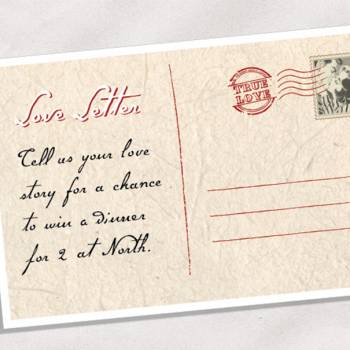 Love Letter
TRUE
LOVE
Tell us your love
story for a chance
to win a dinner
for 2 at North.